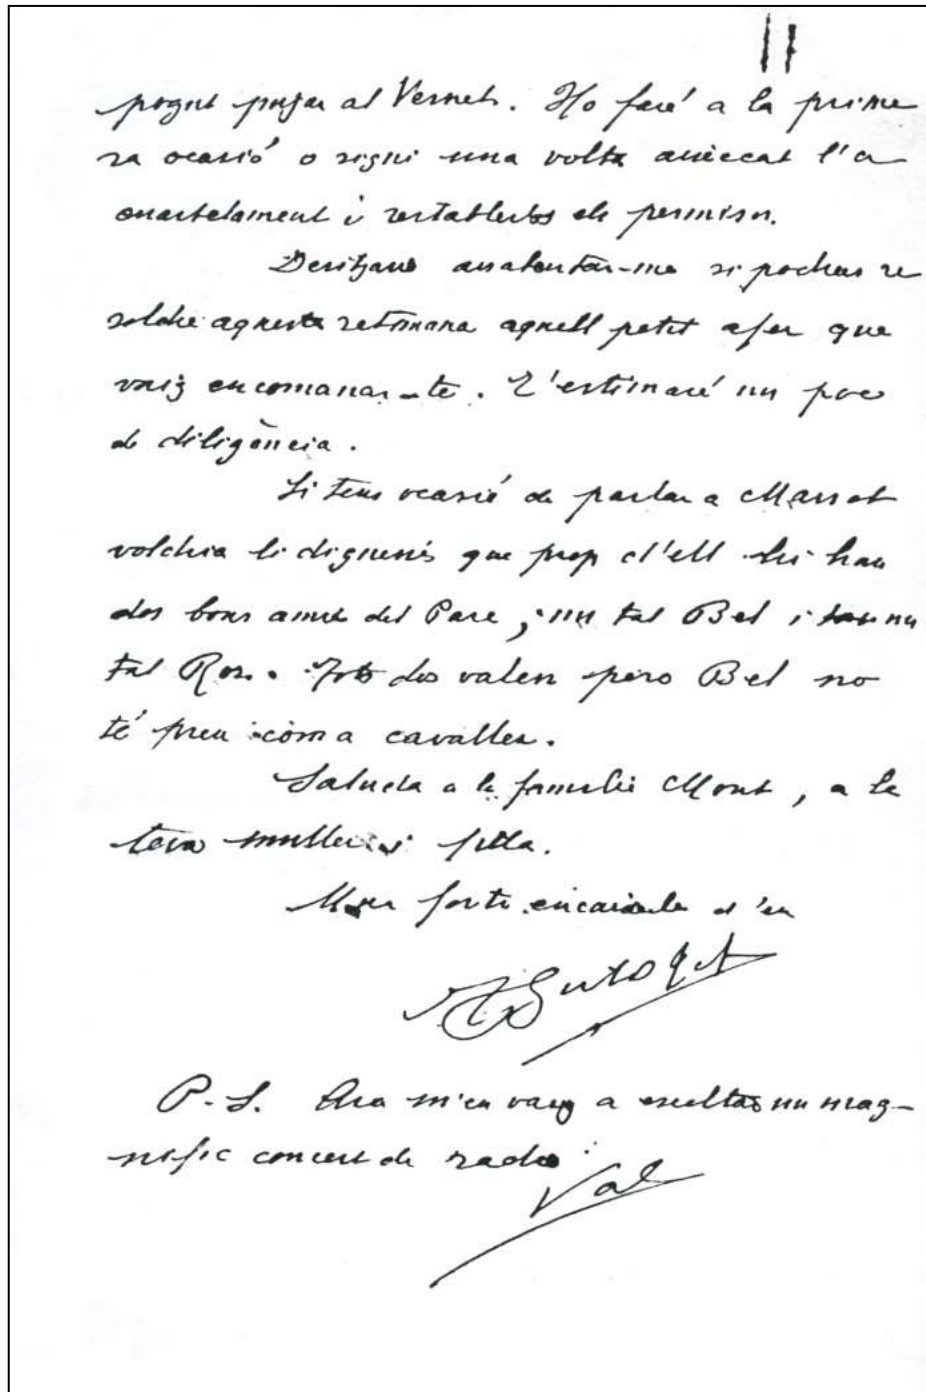 II
pogut pujar al Vernet. Ho faré a la prime
ra ocasió o sigui una volta aixecat l'a
cuartelament i restablerts els permisos.
Desitjant assabentar-me si podràs re
soldre aquesta setmana aquell petit afer que
vaig encomanar-te. T'estimaré un poc
de diligència.
Si tens ocasió de parlar a Massot
voldria li diguessis que prop d'ell hi han
dos bons amics del Pare; un tal Bel i un
tal Ros. Tots dos valen pero Bel no
té preu com a cavaller.
Saluda a la familia Mont, a la
teva muller i filla.
forta encaixada d'en
P.S. Ara m'en vaig a escoltar un mag-
nific concert de radio.
Val